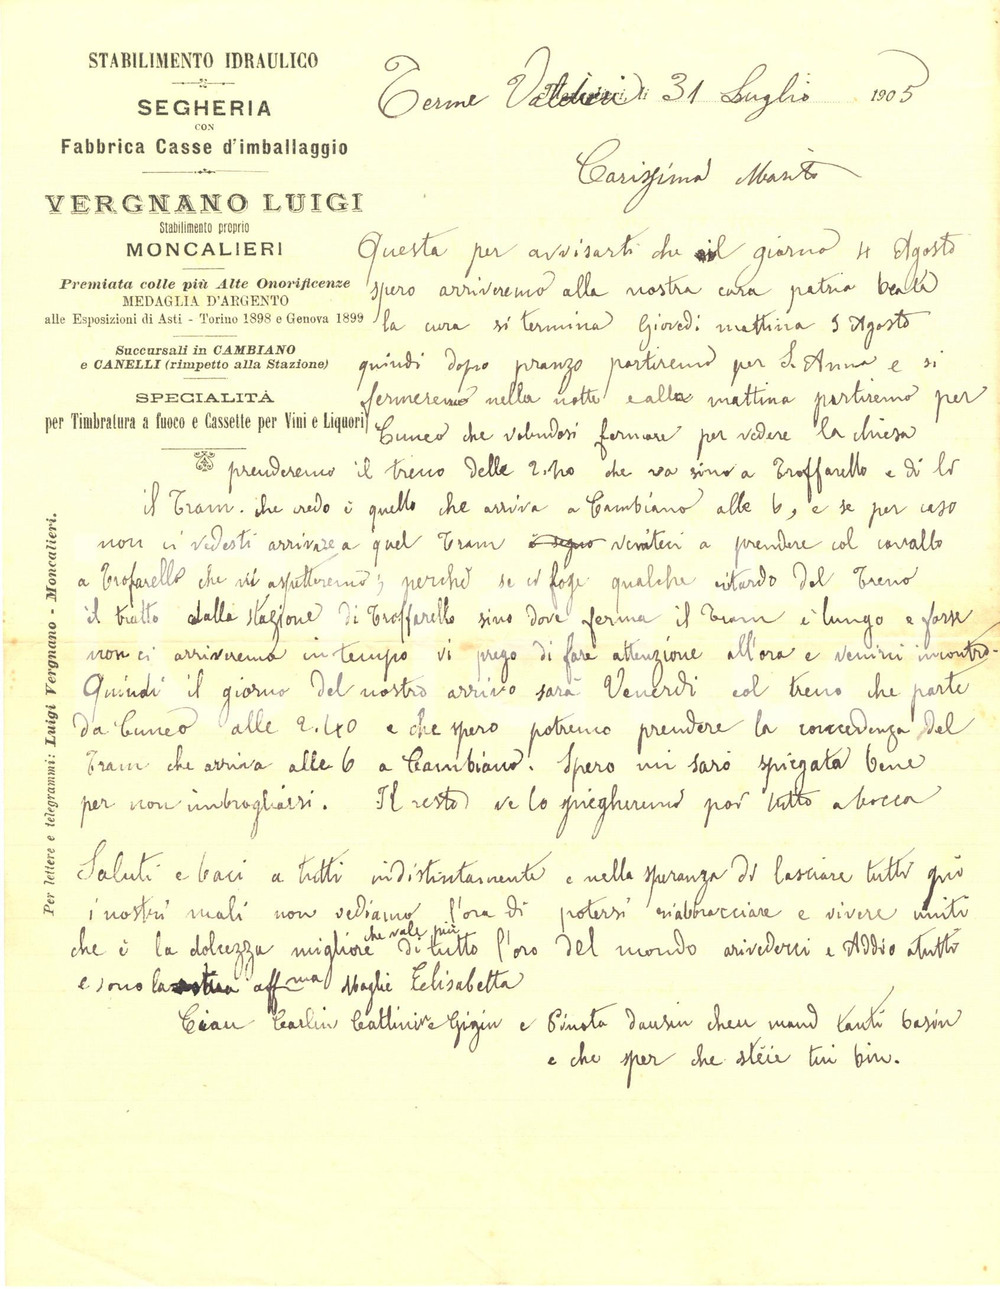 STABILIMENTO IDRAULICO
SEGHERIA
CON
Fabbrica Casse d'imballaggio
VERGNANO LUIGI
Stabilimento proprio
MONCALIERI
Premiata colle più Alte Onorificenze
MEDAGLIA D'ARGENTO
alle Esposizioni di Asti - Torino 1898 e Genova 1899
Succursali in CAMBIANO
e CANELLI (rimpetto alla Stazione)
SPECIALITÀ
per Timbratura a fuoco e Cassette per Vini e Liquori
Per lettere e telegrammi: Luigi Vergnano - Moncalieri.
Terme Valdieri li 31 Luglio 1905
Carissimo Marito
Questa per avvisarti che il giorno 4 Agosto
spero arriveremo alla nostra cara patria beata
la cura si termina Giovedì mattina 3 Agosto
quindi dopo pranzo partiremo per S. Anna e si
fermeremo nella notte e alla mattina partiremo per
Cuneo che volendosi fermare per vedere la chiesa
prenderemo il treno delle 2.40 che va sino a Troffarello e di lì
il Tram. che credo è quello che arriva a Cambiano alle 6, e se per caso
non ci vedesti arrivare a quel Tram veniteci a prendere col cavallo
a Trofarello che vi aspetteremo; perché se ci fosse qualche ritardo del Treno
il tratto dalla stazione di Troffarello sino dove ferma il Tram è lungo e forse
non ci arriveremo in tempo vi prego di fare attenzione all'ora e venirci incontro.
Quindi il giorno del nostro arrivo sarà Venerdì col treno che parte
da Cuneo alle 2.40 e che spero potremo prendere la coincidenza del
Tram che arriva alle 6 a Cambiano. Spero mi sarò spiegata bene
per non imbrogliarsi. Il resto ve lo spiegheremo poi tutto a bocca
Saluti e baci a tutti indistintamente e nella speranza di lasciare tutti quì
i nostri mali non vediamo l'ora di potersi riabbracciare e vivere uniti
che è la dolcezza migliore che vale più di tutto l'oro del mondo arivederci e Addio a tutti
e sono la aff.ma Moglie Elisabetta
Ciau Carlin Cattinin e Gigin e Pinota tanti basin
e che sper che steie tui bin.